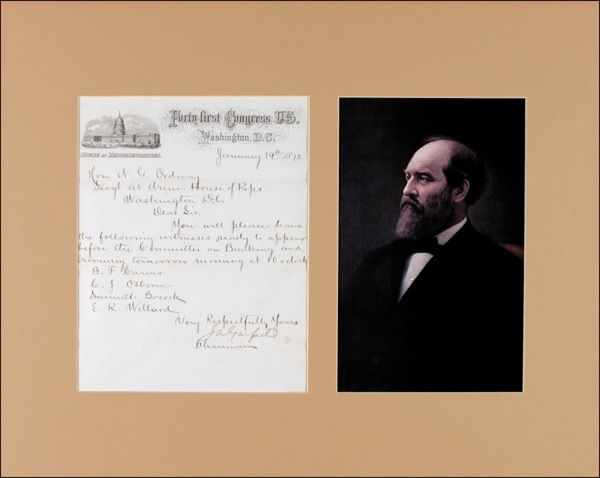 Forty first Congress U.S.
Washington, D.C.
HOUSE OF REPRESENTATIVES.
January 19th 1870.
Hon N. G. Ordway
Sergt at Arms House of Reps
Washington D.C.
Dear Sir.
You will please have
the following witnesses ready to appear
before the Committee on Banking and
Currency tomorrow morning at 10 oclock
B. F. Carver
C. J. Osborn
Samuel Bocock
E. K. Willard
Very Respectfully Yours
J A Garfield
Chairman